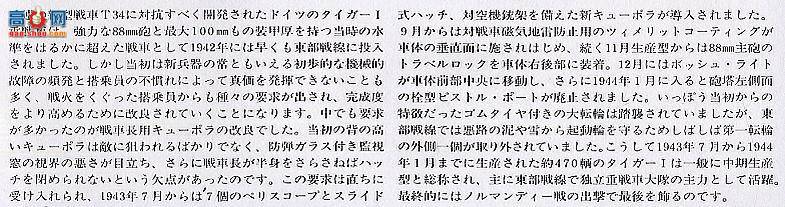 型戦車T34に対抗すべく開発されたドイツのタイガーI
強力な88mm砲と最大100mmもの装甲厚を持つ当時の水
準をはるかに超えた戦車として1942年には早くも東部戦線に投入
されました。しかし当初は新兵器の常ともいえる初歩的な機械的
故障の頻発と搭乗員の不慣れによって真価を発揮できないことも
多く、戦火をくぐった搭乗員からも種々の要求が出され、完成度
をより高めるために改良されていくことになります。中でも要求
が多かったのが戦車長用キューポラの改良でした。当初の背の高
いキューポラは敵に狙われるばかりでなく、防弾ガラス付き監視
窓の視界の悪さが目立ち、さらに戦車長が半身をさらさねばハッ
チを閉められないという欠点があったのです。この要求は直ちに
受け入れられ、1943年7月からは7個のペリスコープとスライド
式ハッチ、対空機銃架を備えた新キューポラが導入されました。
9月からは対戦車磁気地雷防止用のツィメリットコーティングが
車体の垂直面に施されはじめ、続く11月生産型からは88mm主砲の
トラベルロックを車体右後部に装着。12月にはボッシュ・ライト
が車体前部中央に移動し、さらに1944年1月に入ると砲塔左側面
の栓型ピストル・ポートが廃止されました。いっぽう当初からの
特徴だったゴムタイヤ付きの大転輪は踏襲されていましたが、東
部戦線では悪路の泥や雪から起動輪を守るためしばしば第一転輪
の外側一個が取り外されていました。こうして1943年7月から1944
年1月までに生産された約470輌のタイガーIは一般に中期生産
型と総称され、主に東部戦線で独立重戦車大隊の主力として活躍。
最終的にはノルマンディー戦の出撃で最後を飾るのです。